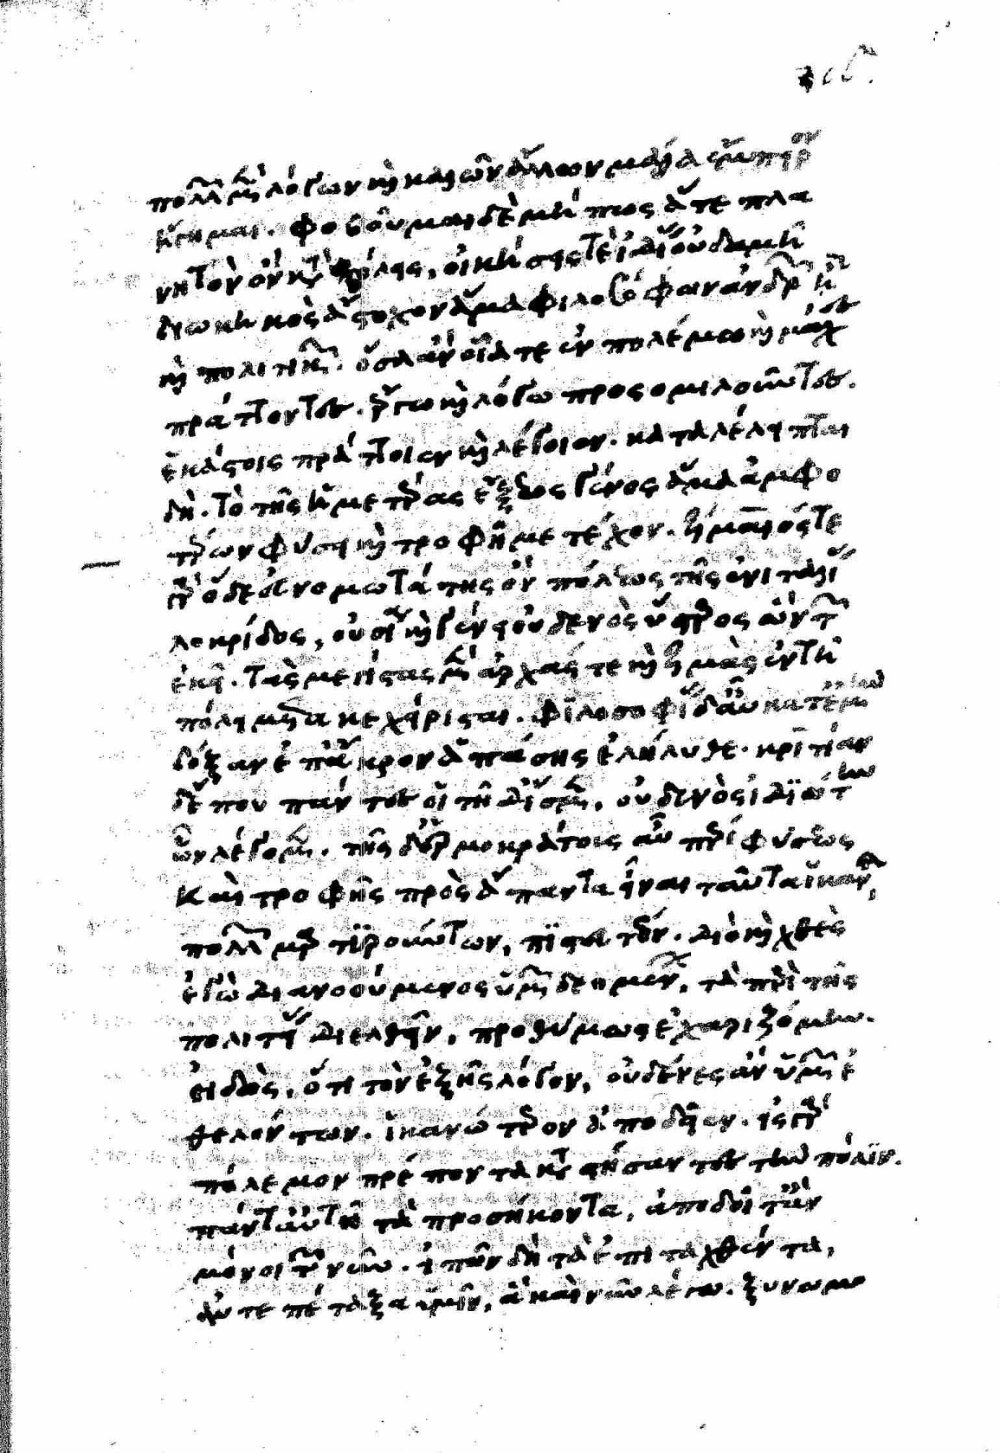 πολλῶν λόγων καὶ καλῶν ἄλλων μάλα ἔμπειρον
ἥγημαι. φοβοῦμαι δὲ μή πως ἅτε πλα
νητὸν ὂν κατὰ πόλεις, οἰκήσεις τε ἰδίας οὐδαμῇ
διωκηκὸς ἄστοχον ἅμα φιλοσόφων ἀνδρῶν ᾖ
καὶ πολιτικῶν. ὅσα ἂν οἷά τε ἐν πολέμω καὶ μάχαις
πράττοντες. ἔργω καὶ λόγω προσομιλοῦντες.
ἑκάστοις πράττοιεν καὶ λέγοιεν. καταλέλειπται
δὴ. τὸ τῆς ἡμετέρας ἕξεως γένος ἅμα ἀμφο
τέρων φύσει καὶ τροφῇ μετέχον. τίμαιός τε
γὰρ ὅδε εὐνομωτάτης ὢν πόλεως τῆς ἐν ἰταλία
λοκρίδος, οὐσία καὶ γένει οὐδενὸς ὕστερος ὢν τῶν
ἐκεῖ. τὰς μεγίστας μὲν ἀρχάς τε καὶ τιμὰς ἐν τῇ
πόλει μετακεχείρισται. φιλοσοφίας δ' αὖ κατ' ἐμὴν
δόξαν ἐπ' ἄκρον ἁπάσης ἐλήλυθε. κριτίαν
δέ που πάντες οἱ τῇδε ἴσμεν, οὐδενὸς ἰδιώτην
ὧν λέγομεν. τῆς δὲ ἑρμοκράτους αὖ περὶ φύσεως
καὶ τροφῆς πρὸς ἅπαντα εἶναι ταῦτα ἱκανήν,
πολλῶν μαρτυρούντων, πιστευτέον. διὸ καὶ χθὲς
ἐγὼ διανοούμενος ὑμῶν δεομένων, τὰ περὶ τῆς
πολιτείας διελθεῖν, προθύμως ἐχαριζόμην.
εἰδὼς, ὅτι τὸν ἑξῆς λόγον, οὐδένες ἂν ὑμῶν ἐ
θελόντων. ἱκανώτερον ἀποδοῖεν. εἰς γὰρ
πόλεμον πρέποντα καταστήσαντες τὴν πόλιν.
πάντ' αὐτῇ τὰ προσήκοντα, ἀποδοῖτ' ἂν
μόνοι τῶν νῦν. εἰπὼν δὴ τὰ ἐπιταχθέντα,
ἀντεπέταξα ὑμῖν, ἃ καὶ νῦν λέγω. ξυνωμο